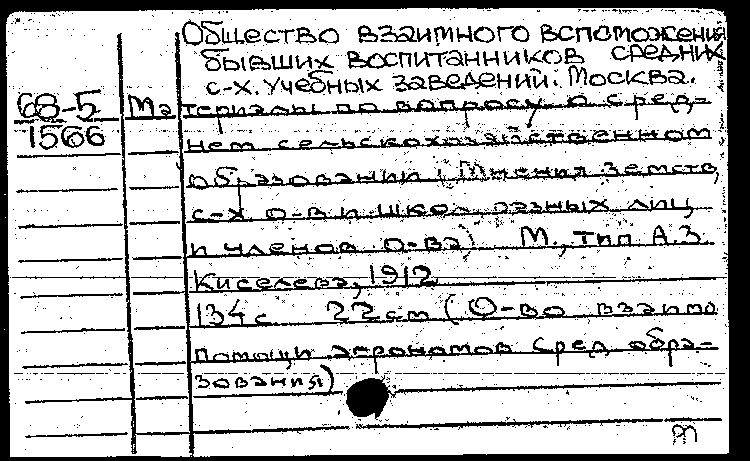 Общество взаимного вспоможени
бывших воспитанников средних
с-х. учебных заведений. Москва.
68-5 Материалы по вопросу о сред-
1566 нем сельскохозяйственном
образовании (Мнения земств,
с-х о-в и школ разных лиц
и членов о-ва) М., тип А.З.
Киселева, 1912
134с 22 см (О-во взаимо
помощи агрономов сред. обра-
зования)